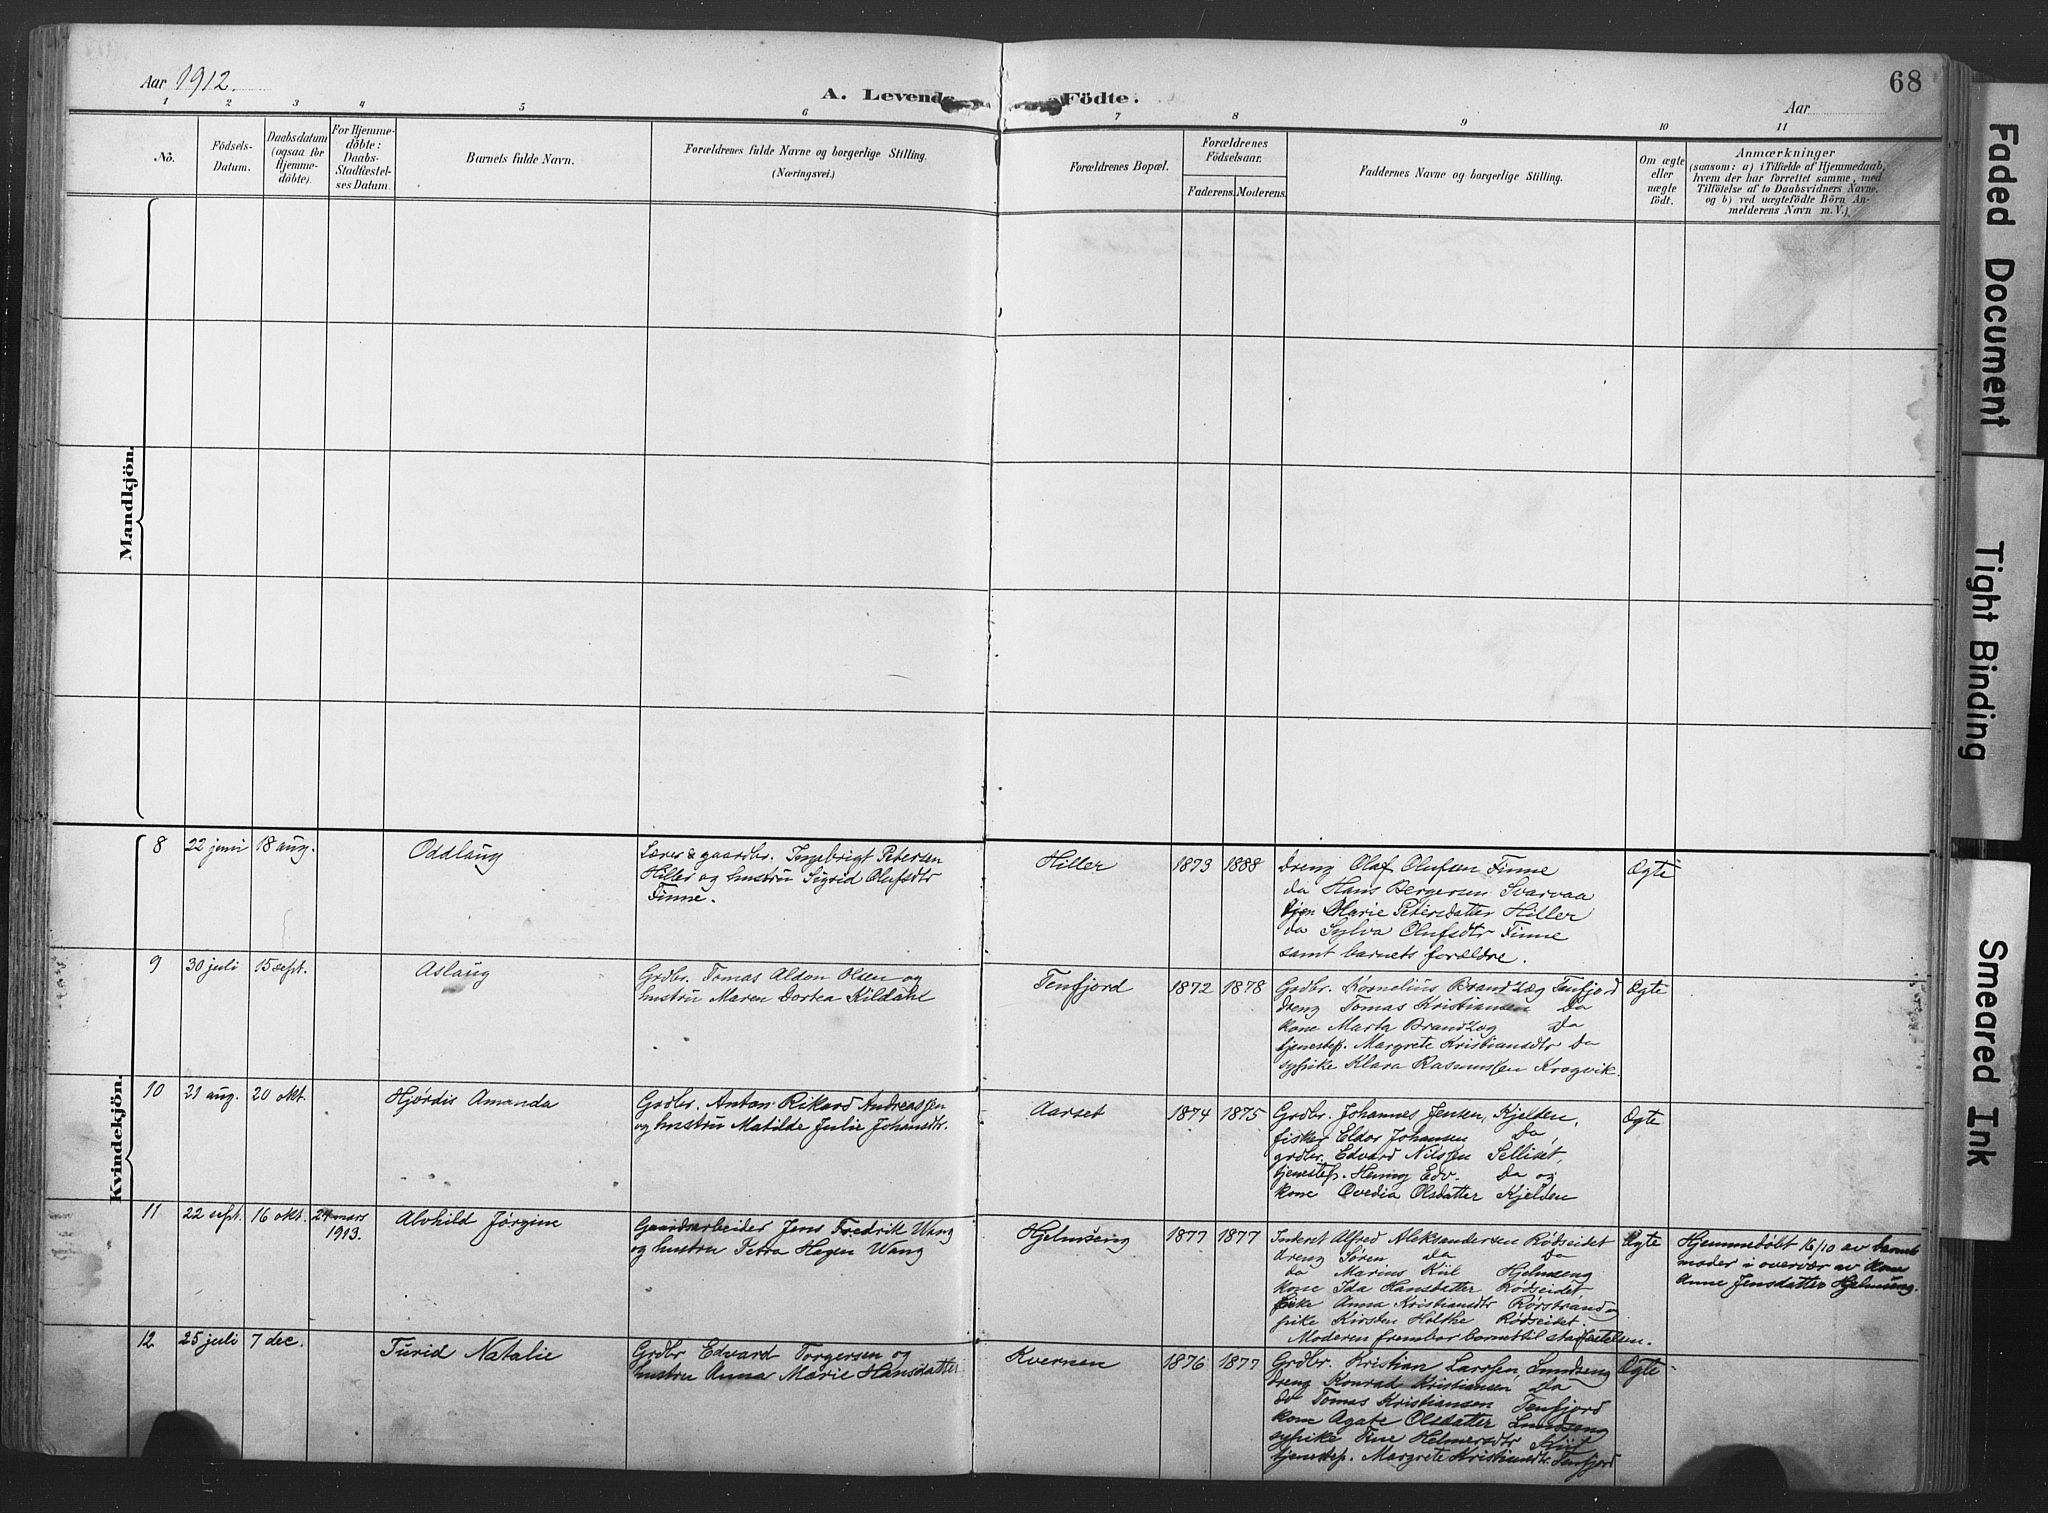 Aar 1912.
A. Levende Födte.
68
Aar
1 2 3 4 5 6 7 8 9 10 11
No.
Födsels-
Datum.
Daabsdatum
(ogsaa for
Hjemme-
döbte).
For Hjemme-
döbte:
Daabs-
Stadfæstel-
ses Datum.
Barnets fulde Navn.
Forældrenes fulde Navne og borgerlige Stilling.
(Næringsvei.)
Forældrenes Bopæl.
Forældrenes
Födselsaar.
Faderens. Moderens.
Faddernes Navne og borgerlige Stilling.
Om ægte
eller
uægte
födt.
Anmærkninger
(saasom: a) i Tilfælde af Hjemmedaab,
hvem der har forrettet samme, med
Tilföielse af to Daabsvidners Navne.
og b) ved uægtefödte Börn An-
melderens Navn m. V.)
Mandkjön.
Kvindekjön.
8 22 juni 18 aug. Oddlaug
Lærer & gaardbr. Ingebrigt Petersen
Hiller og hustru Sigrid Olufsdtr
Finne.
Hiller 1873 1888
Dreng Olaf Olufsen Finne
da Hans Bergersen Svarvaa
Pjen Marie Petersdatter Hiller
da Sylva Olufsdtr Finne
samt barnets forældre.
Ægte
9 30 juli 15 sept. Aslaug
Grdbr. Tomas Aldon Olsen og
hustru Maren Dortea Kildahl
Tenfjord 1872 1878
Grdbr. Kornelius Brandzæg Tenfjord
dreng Tomas Kristiansen Da
kone Marta Brandzæg Da
tjenestep. Margrete Kristiansdtr Da
sypike Klara Rasmussen Krogvik.
Ægte
10 21 aug. 20 okt. Hjørdis Amanda
Grdbr. Anton Rikard Andreassen
og hustru Matilde Julie Johansdtr.
Aarset 1874 1875
Grdbr. Johannes Jensen, Kjelden,
fisker Eldor Johansen Da,
grdbr. Edvard Nilssen Selliset,
tjenestep. Henny Edv. Da og
kone Ovedia Olsdatter Kjelden
Ægte
11 22 sept. 16 okt. 24 mars
1913. Alvhild Jørgine
Gaardsarbeider Jens Fredrik Wang
og hustru Petra Hagen Wang
Hjelmseng 1877 1877
Inderst Alfred Aleksandersen Rødseidet
dreng Søren da Da
da Marius Kiil Hjelmseng
kone Ida Hansdatter Rødseidet
pike Anna Kristiansdtr Rørstrand og
pike Kirsten Holthe Rødseidet.
Moderen frembar barnet til stadfæstelsen.
Ægte
Hjemmedøbt 16/10 av barnets
moder i overvær av kone
Anne Jensdatter Hjelmseng.
12 25 juli 7 dec. Turid Natalie
Grdbr Edvard Torgersen og
hustru Anna Marie Hansdatter
Kvernen 1876 1877
Grdbr. Kristian Larssen, Smidseng
dreng Konrad Kristiansen Da
do Tomas Kristiansen Tenfjord
kone Agate Olsdatter Smidseng
sypike Tine Helmersdtr Kiil
tjenestep. Margrete Kristiansdtr. Tenfjord
Ægte
Faded Document
Tight Binding
Smeared Ink